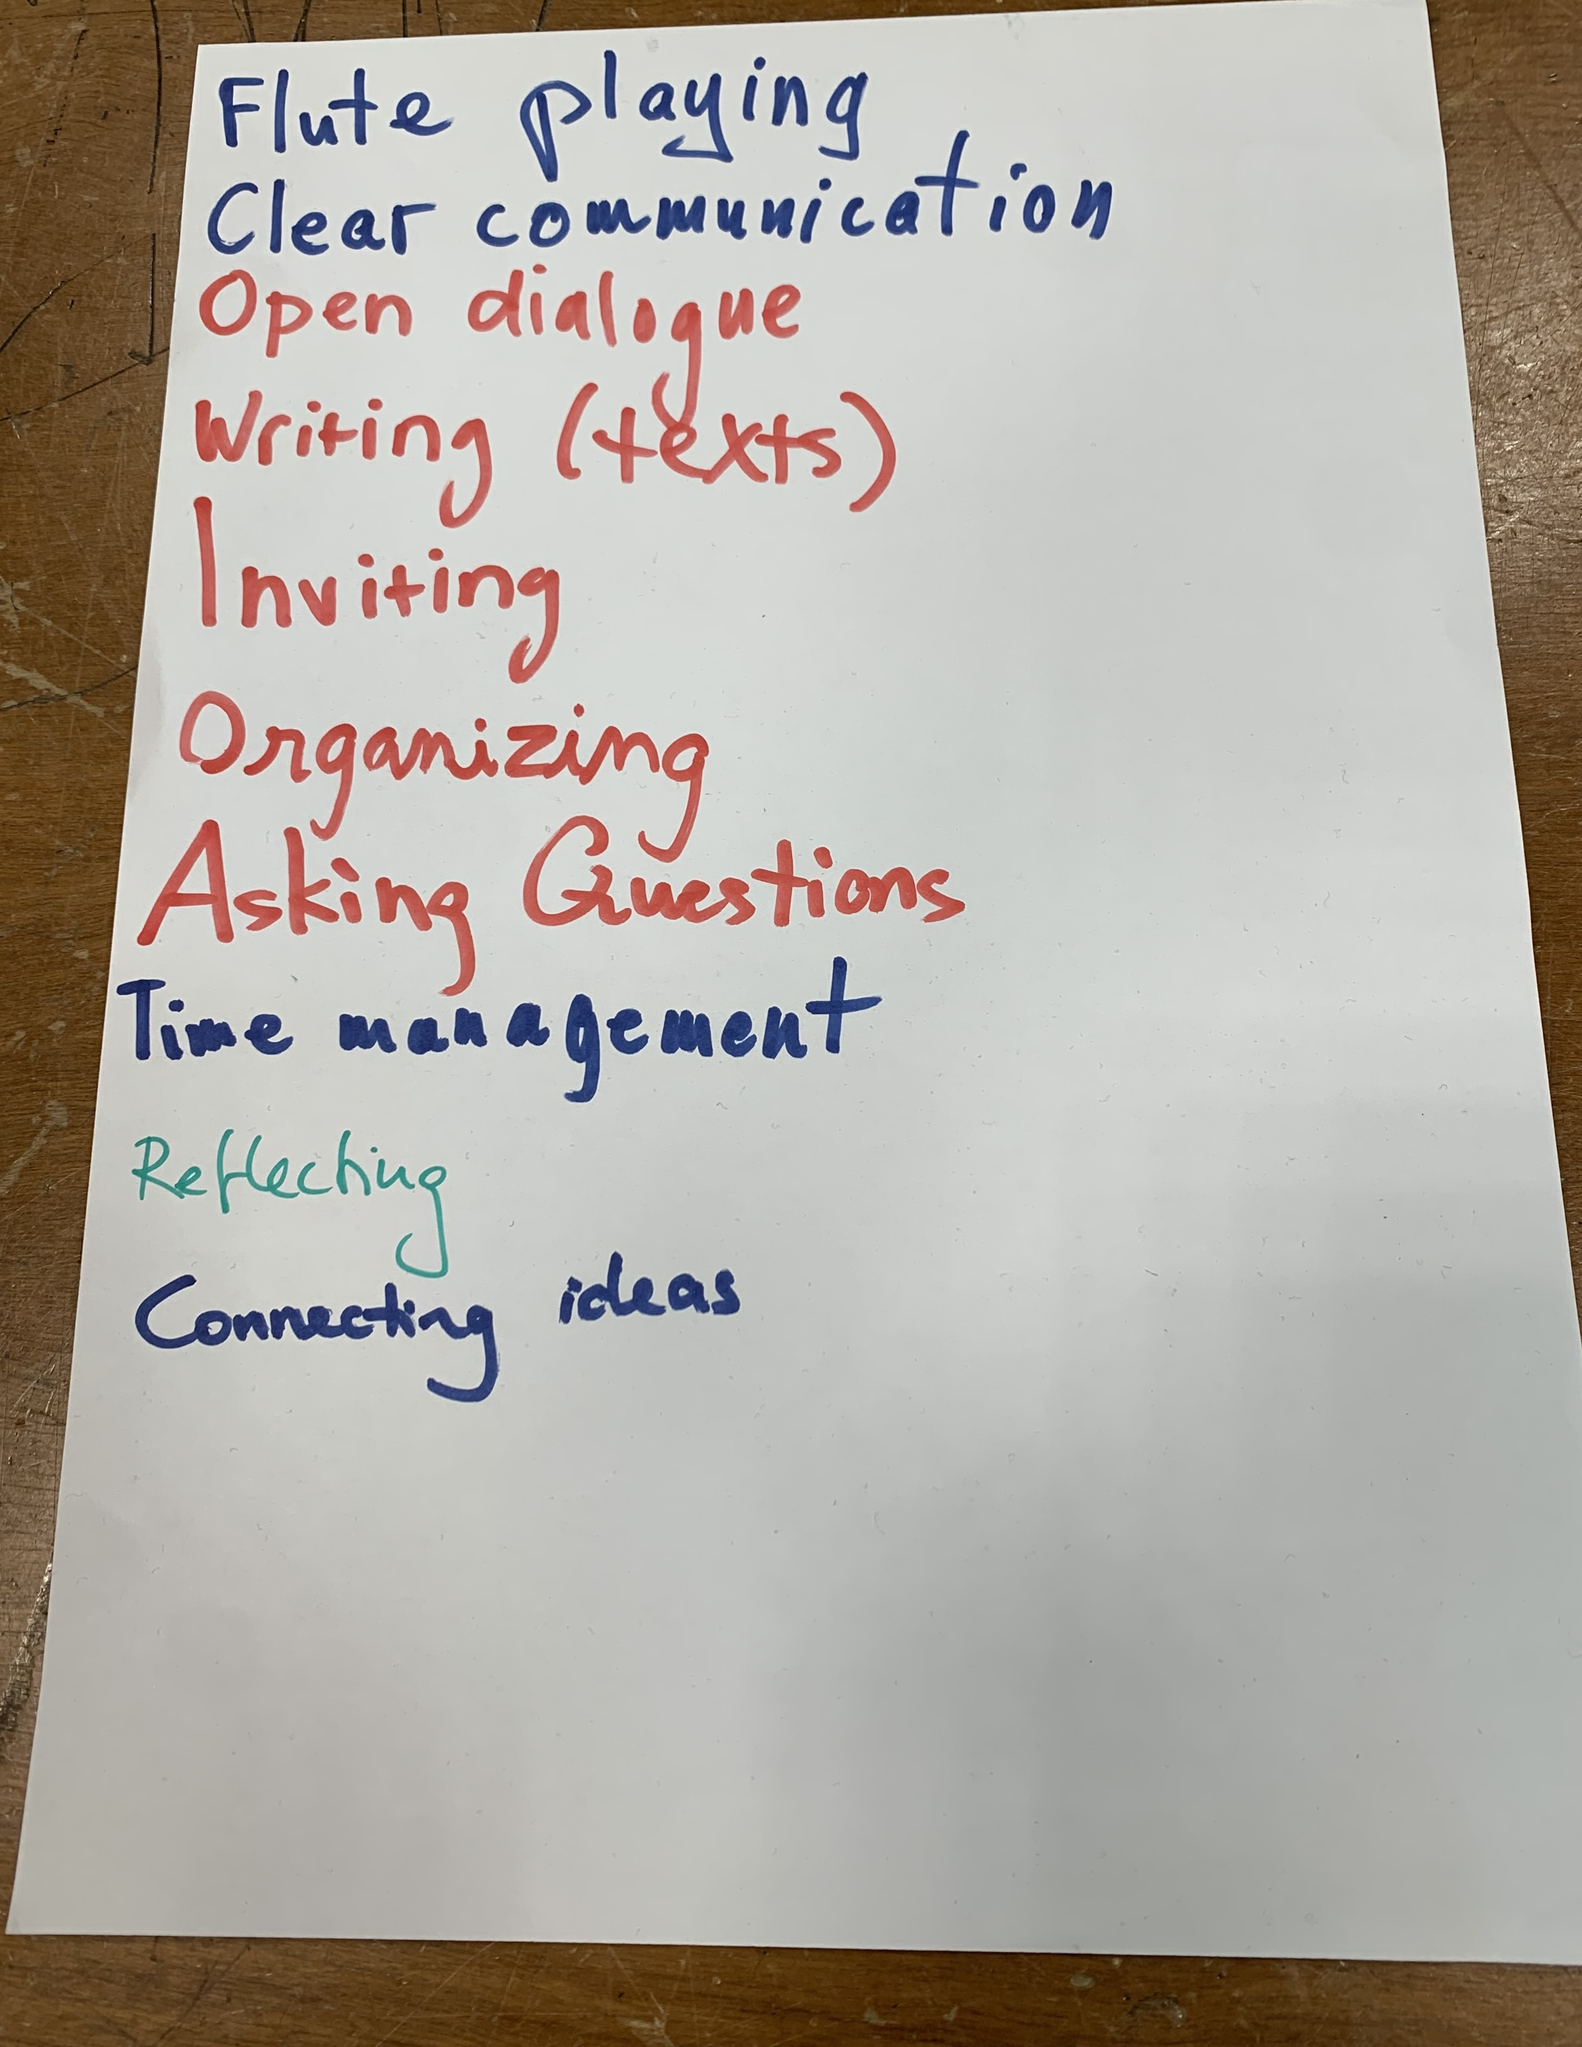 Flute playing
Clear communication
Open dialogue
Writing (texts)
Inviting
Organizing
Asking Questions
Time management
Reflecting
Connecting ideas